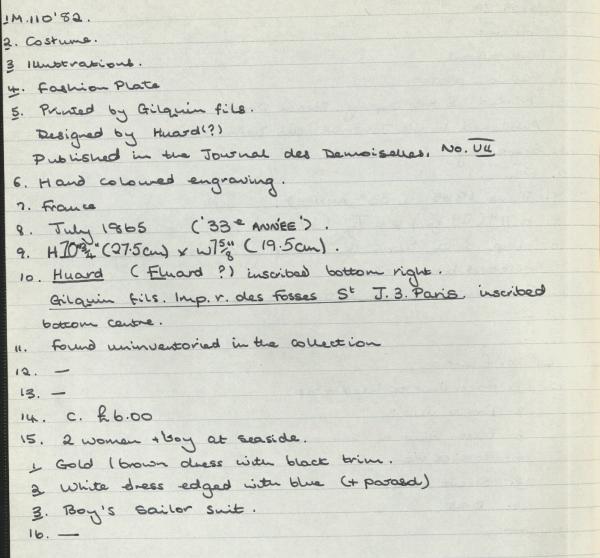 1M.110'82.
2. Costume.
3 Illustrations.
4. Fashion Plate
5. Printed by Gilquin fils.
Designed by Huard(?)
Published in the Journal des Demoiselles, No. VII
6. Hand coloured engraving.
7. France
8. July 1865 ('33e ANNÉE').
9. H10¾" (27.5cm) x W7⅝" (19.5cm).
10. Huard (Eluard ?) inscribed bottom right.
Gilquin fils. Imp. r. des Fosses St J. 3. Paris, inscribed
bottom centre.
11. Found uninventoried in the collection
12. —
13. —
14. C. £6.00
15. 2 women + boy at seaside.
1 Gold / brown dress with black trim.
2 White dress edged with blue (+ parasol)
3. Boy's Sailor Suit.
16. —